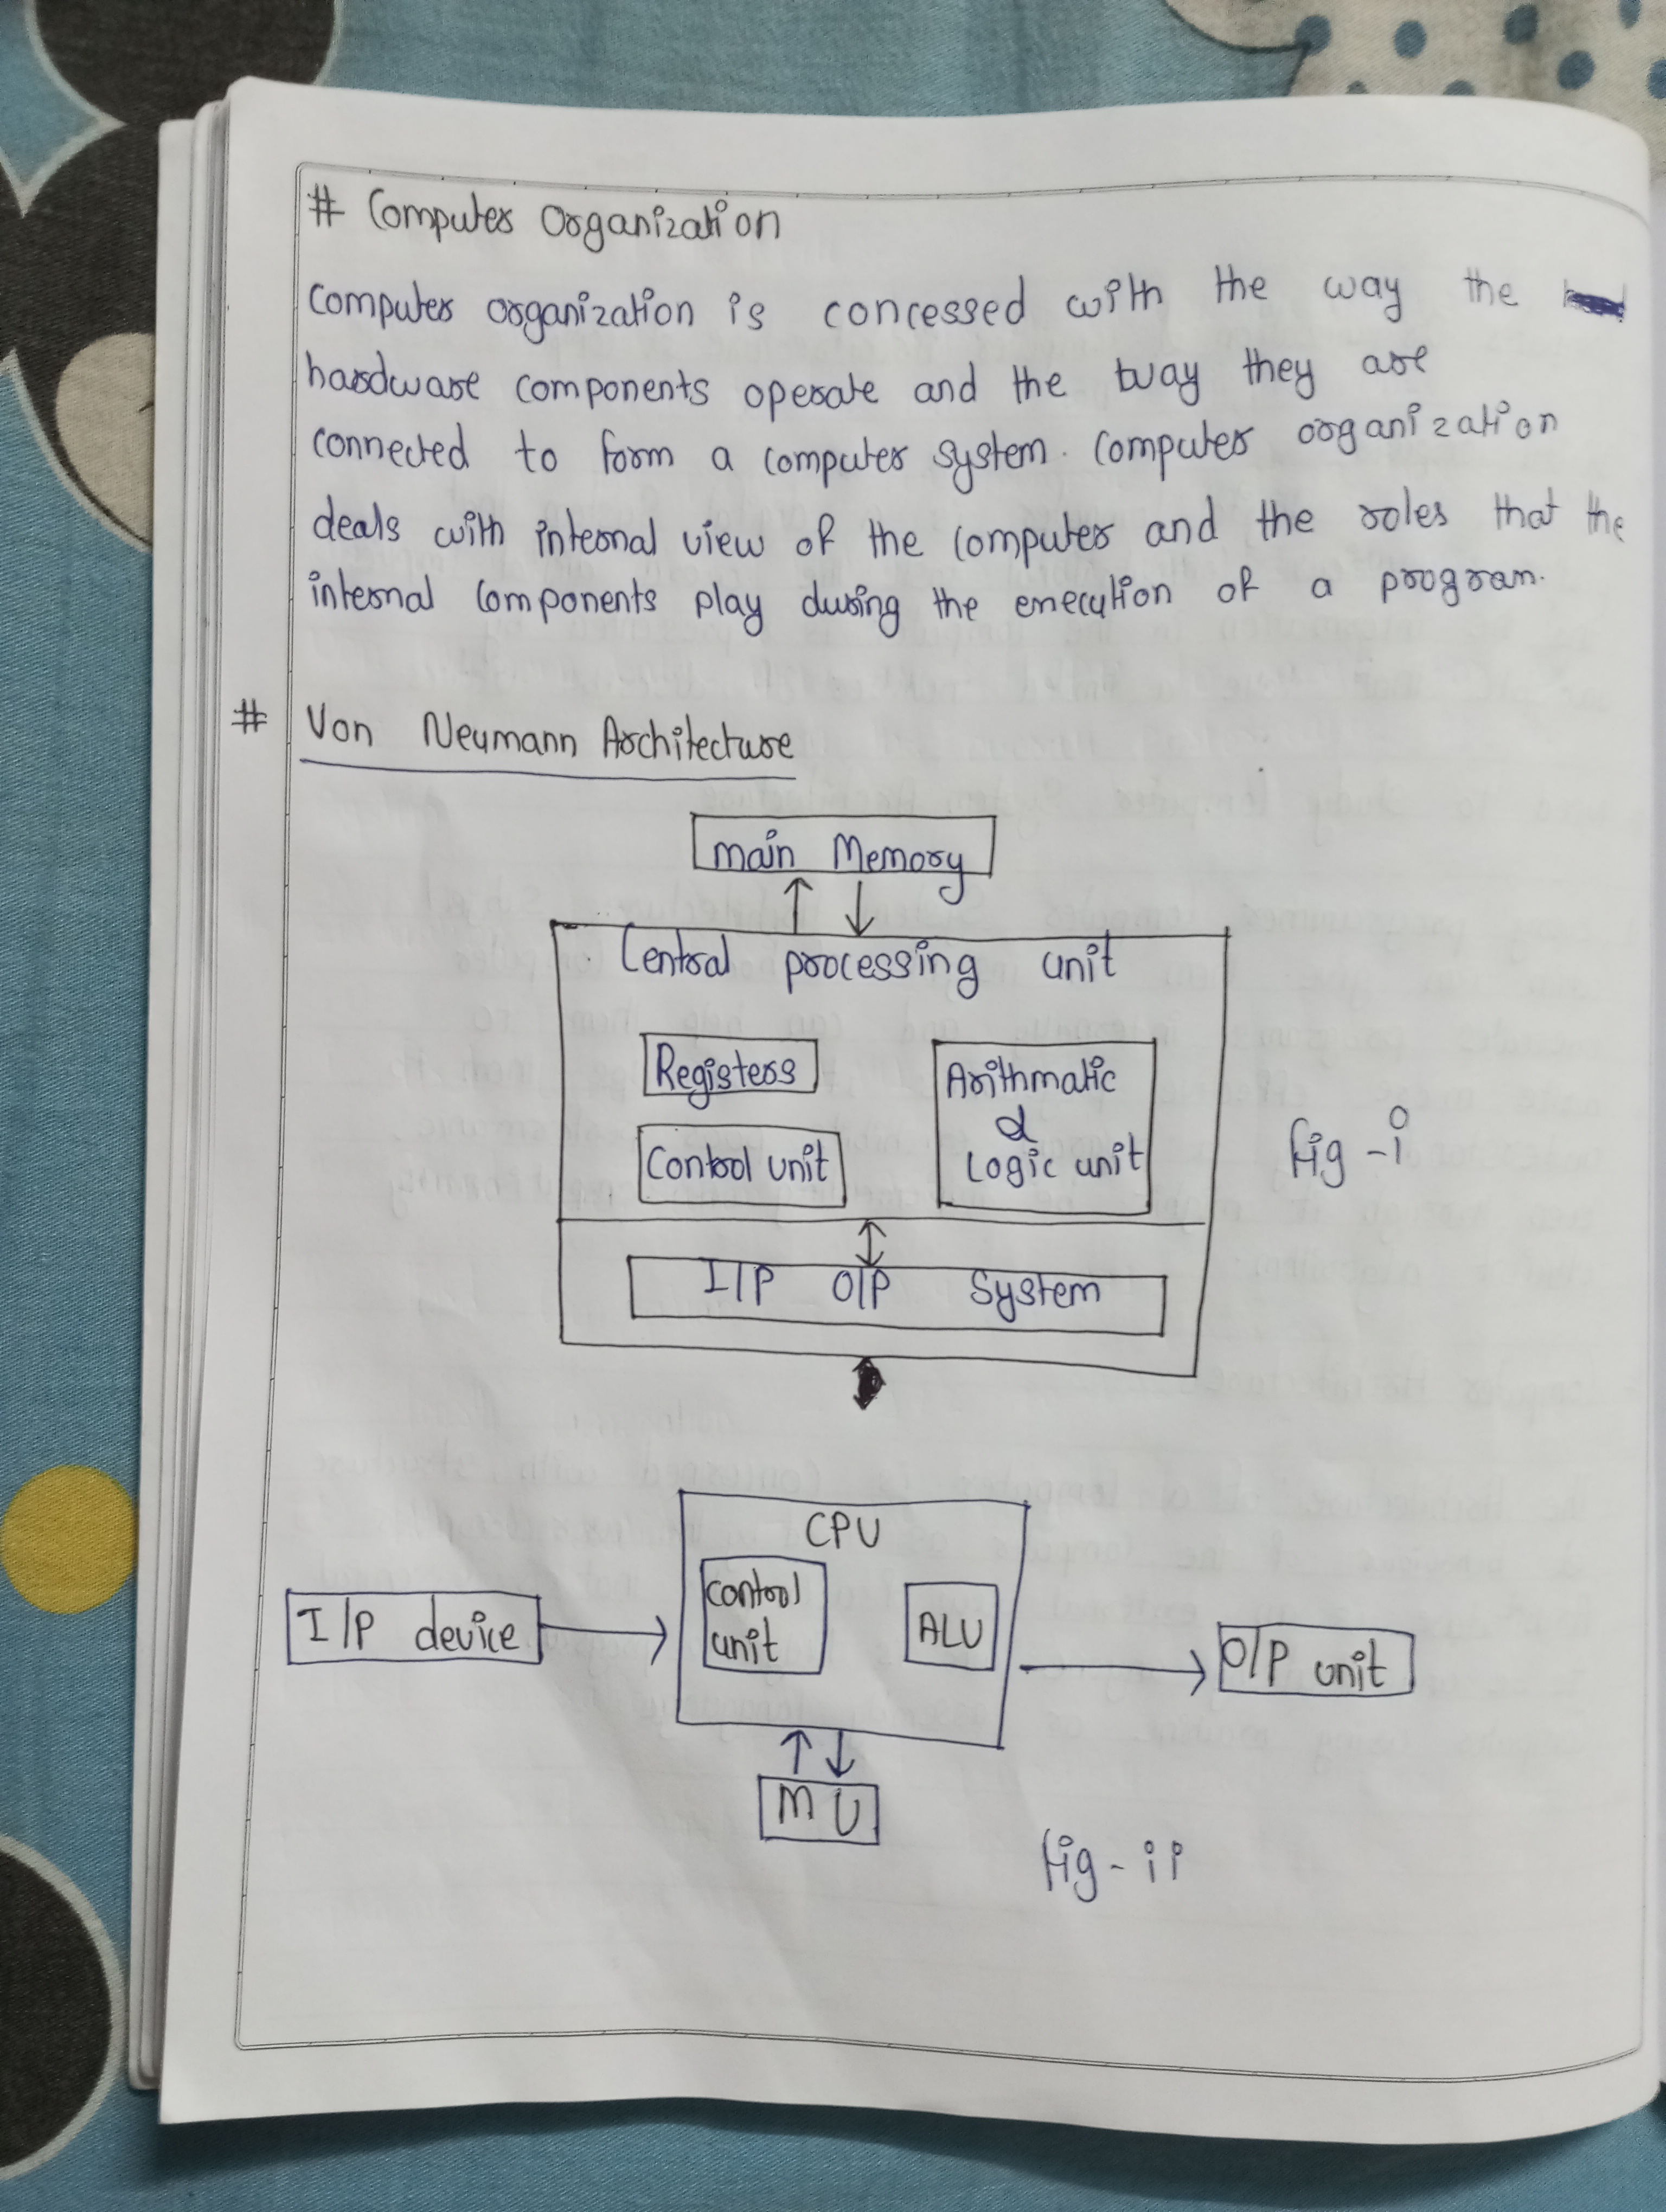 # Computer Organization
Computer organization is concerned with the way the
hardware components operate and the way they are
connected to form a computer system. Computer organization
deals with internal view of the computer and the roles that the
internal components play during the execution of a program.
# Von Neumann Architecture
main Memory
Central processing unit
Registers
Arithmatic
&
Logic unit
Control unit
fig - i
I/P O/P System
CPU
control
unit
ALU
I/P device
O/P unit
M U
fig - ii